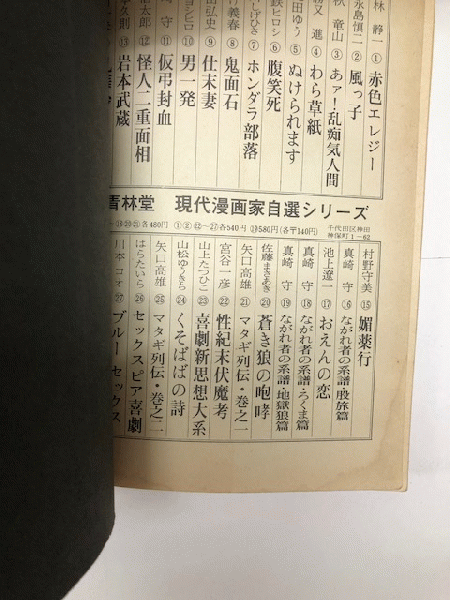 林 静一 ① 赤色エレジー
永島慎二 ② 風っ子
秋 竜山 ③ あァ！乱痴気人間
勝又 進 ④ わら草紙
田ゆう ⑤ ぬけられます
鉄ヒロシ ⑥ 腹笑死
しげひさ ⑦ ホンダラ部落
義春 ⑧ 鬼面石
弘史 ⑨ 仕末妻
ヨシヒロ ⑩ 男一発
守 ⑪ 仮弔封血
太郎 ⑫ 怪人二重面相
久則 ⑬ 岩本武蔵
青林堂 現代漫画家自選シリーズ
千代田区神田
神保町1-62
各480円 各540円 ⑲580円(各〒140円)
村野守美 ⑮ 媚薬行
真崎 守 ⑯ ながれ者の系譜・股旅篇
池上遼一 ⑰ おえんの恋
真崎 守 ⑱ ながれ者の系譜・ろくま篇
真崎 守 ⑲ ながれ者の系譜・地獄狼篇
佐藤まさあき ⑳ 蒼き狼の咆哮
矢口高雄 ㉑ マタギ列伝・巻之一
宮谷一彦 ㉒ 性紀末伏魔考
山上たつひこ ㉓ 喜劇新思想大系
山松ゆうきち ㉔ くそばばの詩
矢口高雄 ㉕ マタギ列伝・巻之二
はらたいら ㉖ セックスピア喜劇
川本コオ ㉗ ブルーセックス